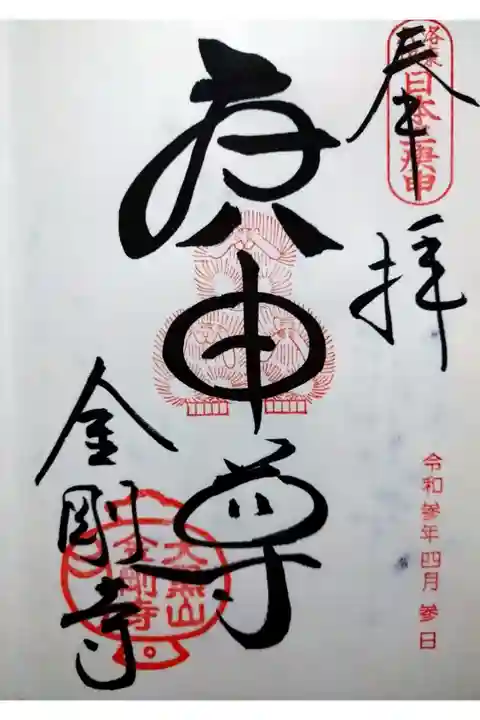 奉拝
日本三庚申
庚申尊
金剛寺
大黒山
金剛寺
令和参年四月参日